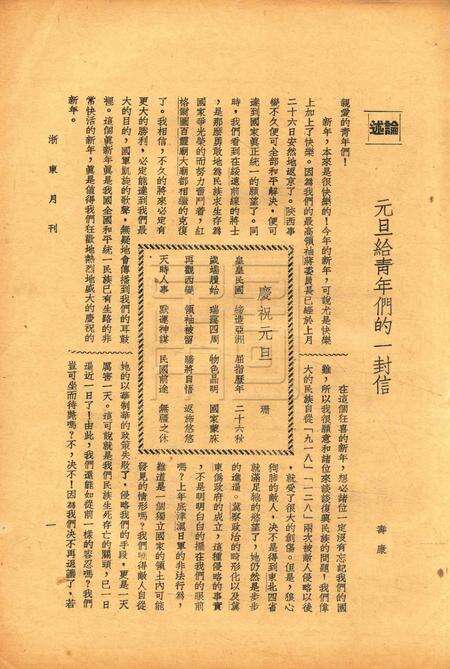 論述
元旦給青年們的一封信
壽康
親愛的青年們！
新年，本來是很快樂的！今年的新年，可說尤是快樂
上加上了快樂。因為我們的最高領袖蔣委員長已經於上月
二十六日安然地返京了。陝西事
變不久便可全部和平解決，便可
達到國家眞正統一的願望了。同
時，我們看到在綏遠前線的將士
，是那麼勇敢地為民族求生存為
國家爭光榮的而努力奮鬥着，紅
格爾圖百靈廟大廟都相繼的克復
了。我相信，不久的將來必定有
更大的勝利，必定能達到我們最
大的目的，國軍凱旋的歌聲，無疑地會傳播到我們的耳鼓
裡。這個眞新年眞我國全國和平統一民族已有生路的非
常快活的新年，眞是値得我們狂歡地熱烈地盛大的慶祝的
新年。
慶祝元旦 珊
皇皇民國 締造亞洲 屈指歷年 二十六秋
歲端履始 瑞靄四周 物色昌明 國家蒙庥
再觀西變 領袖被留 將自悟 返旆悠悠
天時人事 默運神謀 民國前途 無疆之休
在這個狂喜的新年，想必諸位一定沒有忘記我們的國
難，所以我很願意和諸位來談談復興民族的問題，我們偉
大的民族自從「九一八」「一二八」兩次被敵人侵略以後
，就受了很大的創傷。但是，狼心
狗肺的敵人，決不是得到東北四省
就滿足牠的慾望了，她仍然是步步
的進逼。冀察政治的畸形化以及冀
東僞政府的成立，這種侵略的事實
，不是明明白白的擺在我們的眼前
嗎？上年底津滬日軍的非法行為，
難道是一個獨立國家的領土內可能
發見的情形嗎？我們得敵人自從
她的以華制華的政策失敗了，侵略我們的手段，更是一天
厲害一天。這可說就是我們民族生死存亡的關頭，已一日
逼近一日了！由此，我們還能如從前一樣的容忍嗎？我們
豈可坐而待斃嗎？不，決不！因為我們決不再退讓了，若
浙東月刊
一